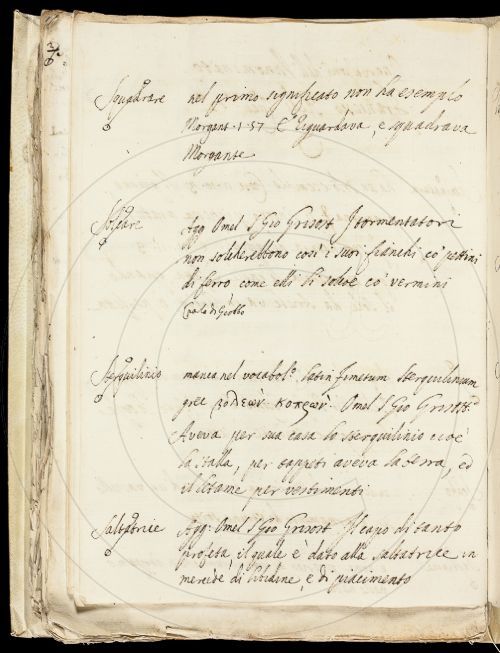 Squadrare nel primo significato non ha esempio
Morgant. 1. 57 E sguardava, e squadrava
Morgante
Solcare Agg. Omel. S Gio Grisost I tormentatori
non solcherebbono così i suoi fianchi co' pettini
di ferro come elli li solcò co' vermini
Sterquilinio manca nel vocabol.º latin fimetum sterquilinium
grec βολεών κοπρών. Omel S Gio Grisost.
Aveva per sua casa lo sterquilinio cioè
la stalla, per tappeti aveva la terra, ed
il letame per vestimenti
Saltatrice Agg. Omel S Gio Grisost Il capo di tanto
profeta il quale è dato alla saltatrice in
mercede di libidine, e di piacimento